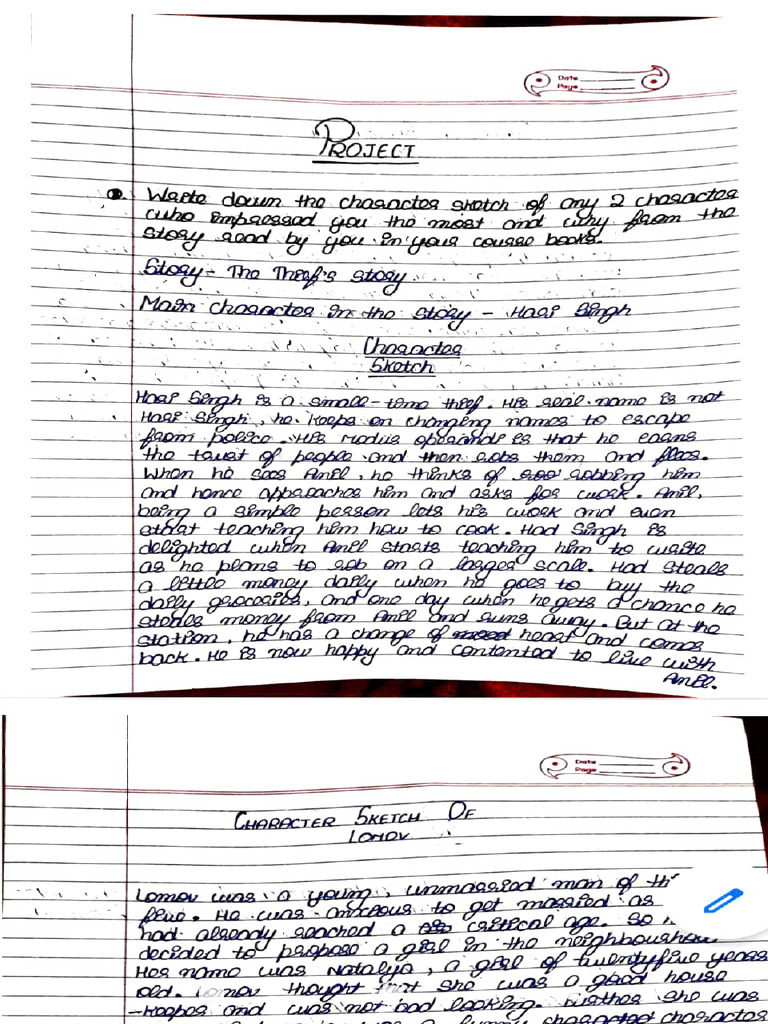 Date
Page
PROJECT
Write down the character sketch of any 2 character
who impressed you the most and why from the
story read by you in your course books.
Story - The Thief's story.
Main character in the story - Hari Singh
Character
Sketch
Hari Singh is a small-time thief. His real name is not
Hari Singh, he keeps on changing names to escape
from police. His modus operandi is that he earns
the trust of people and then robs them and flees.
When he sees Anil, he thinks of robbing him
and hence approaches him and asks for work. Anil,
being a simple person lets his work and even
start teaching him how to cook. Hari Singh is
delighted when Anil starts teaching him to write
as he plans to rob on a larger scale. Hari steals
a little money daily when he goes to buy the
daily groceries, and one day when he gets a chance he
stoles money from Anil and runs away. But at the
station, he has a change of heart and comes
back. He is now happy and contented to live with
Anil.
Date
Page
CHARACTER SKETCH OF
LOMOV
Lomov was a young, unmarried man of
five. He was anxious to get married as
had already reached a critical age. So
decided to propose a girl in the
Her name was Natalya, a girl of twentyfive years
old. Lomov thought that she was a good house
-keeper and was not bad looking. Further she was